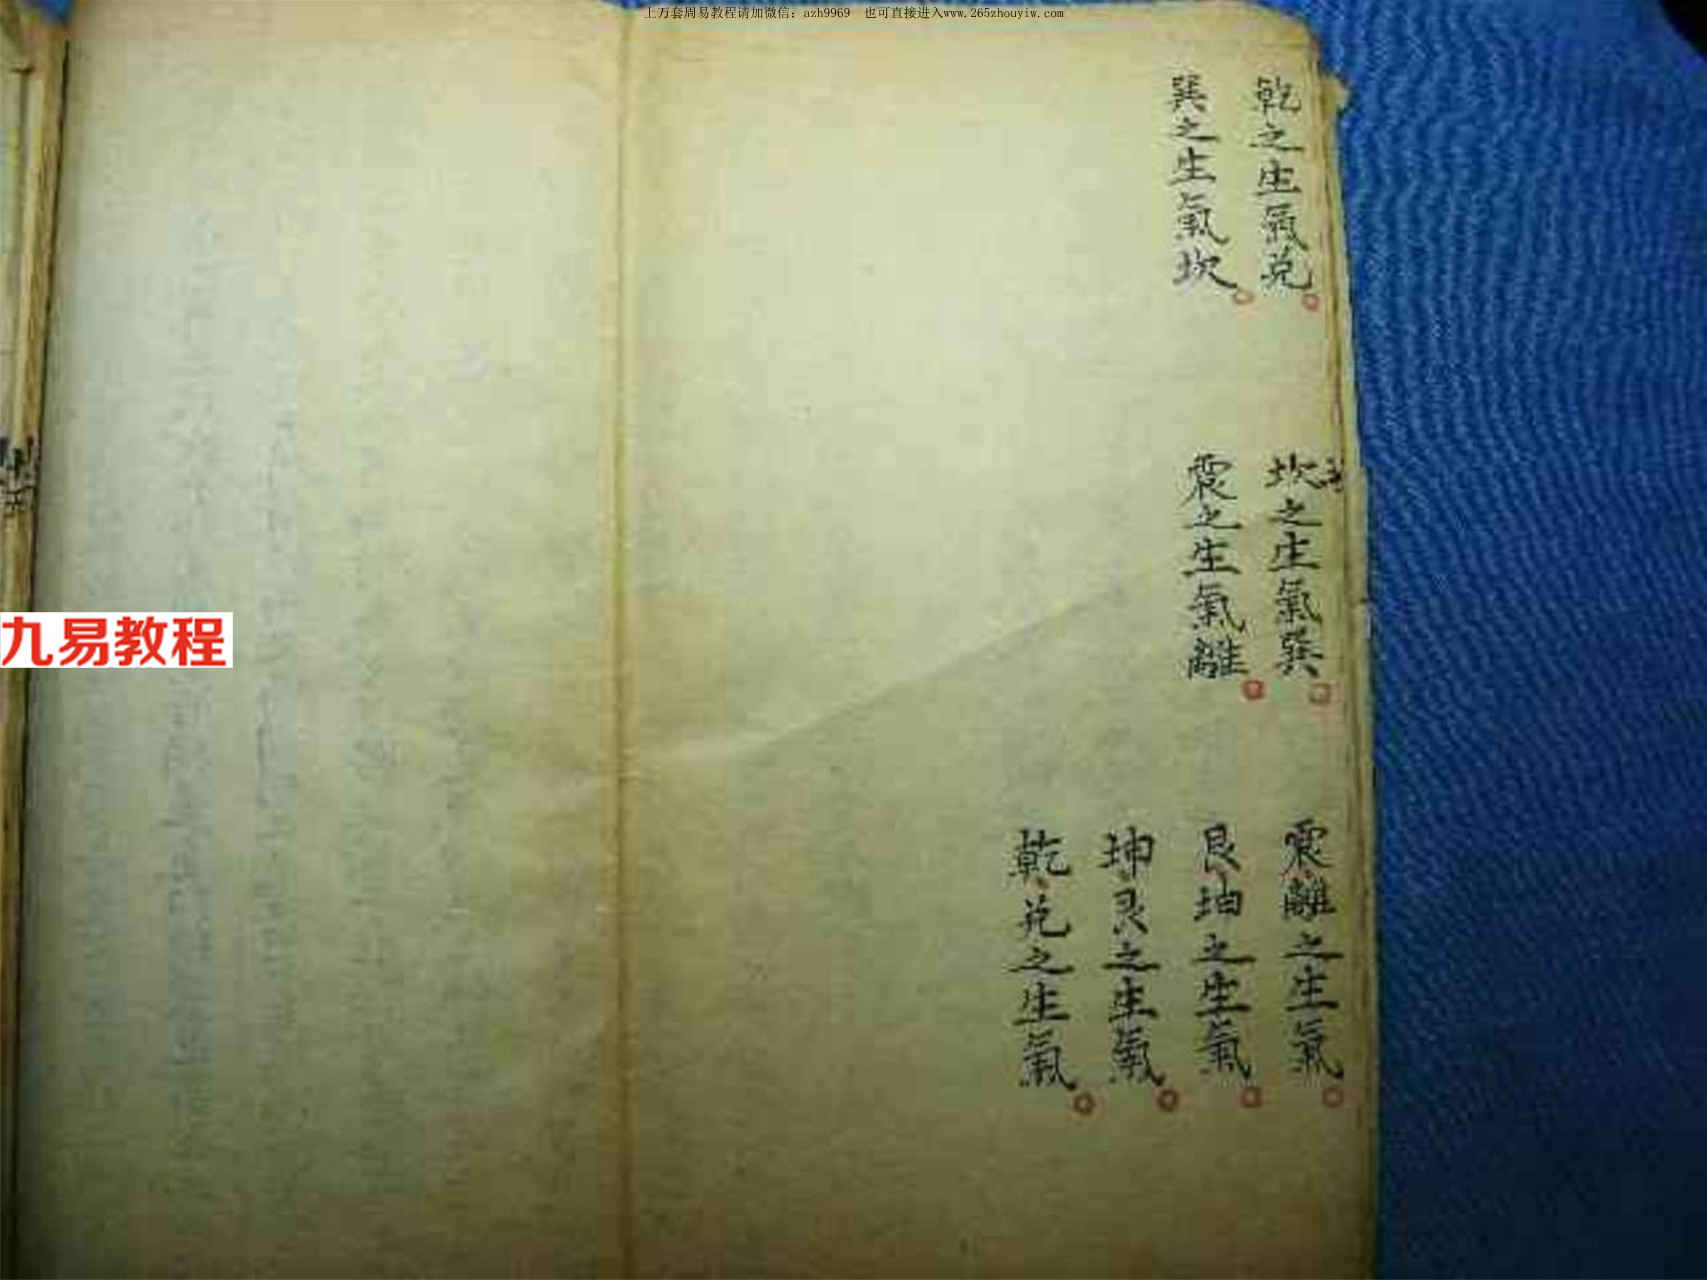 上万套周易教程请加微信：azh9969　也可直接进入www.265zhouyiw.com
乾之生氣兑
巽之生氣坎
坎之生氣巽
震之生氣離
震離之生氣
艮坤之生氣
坤艮之生氣
乾兑之生氣
九易教程